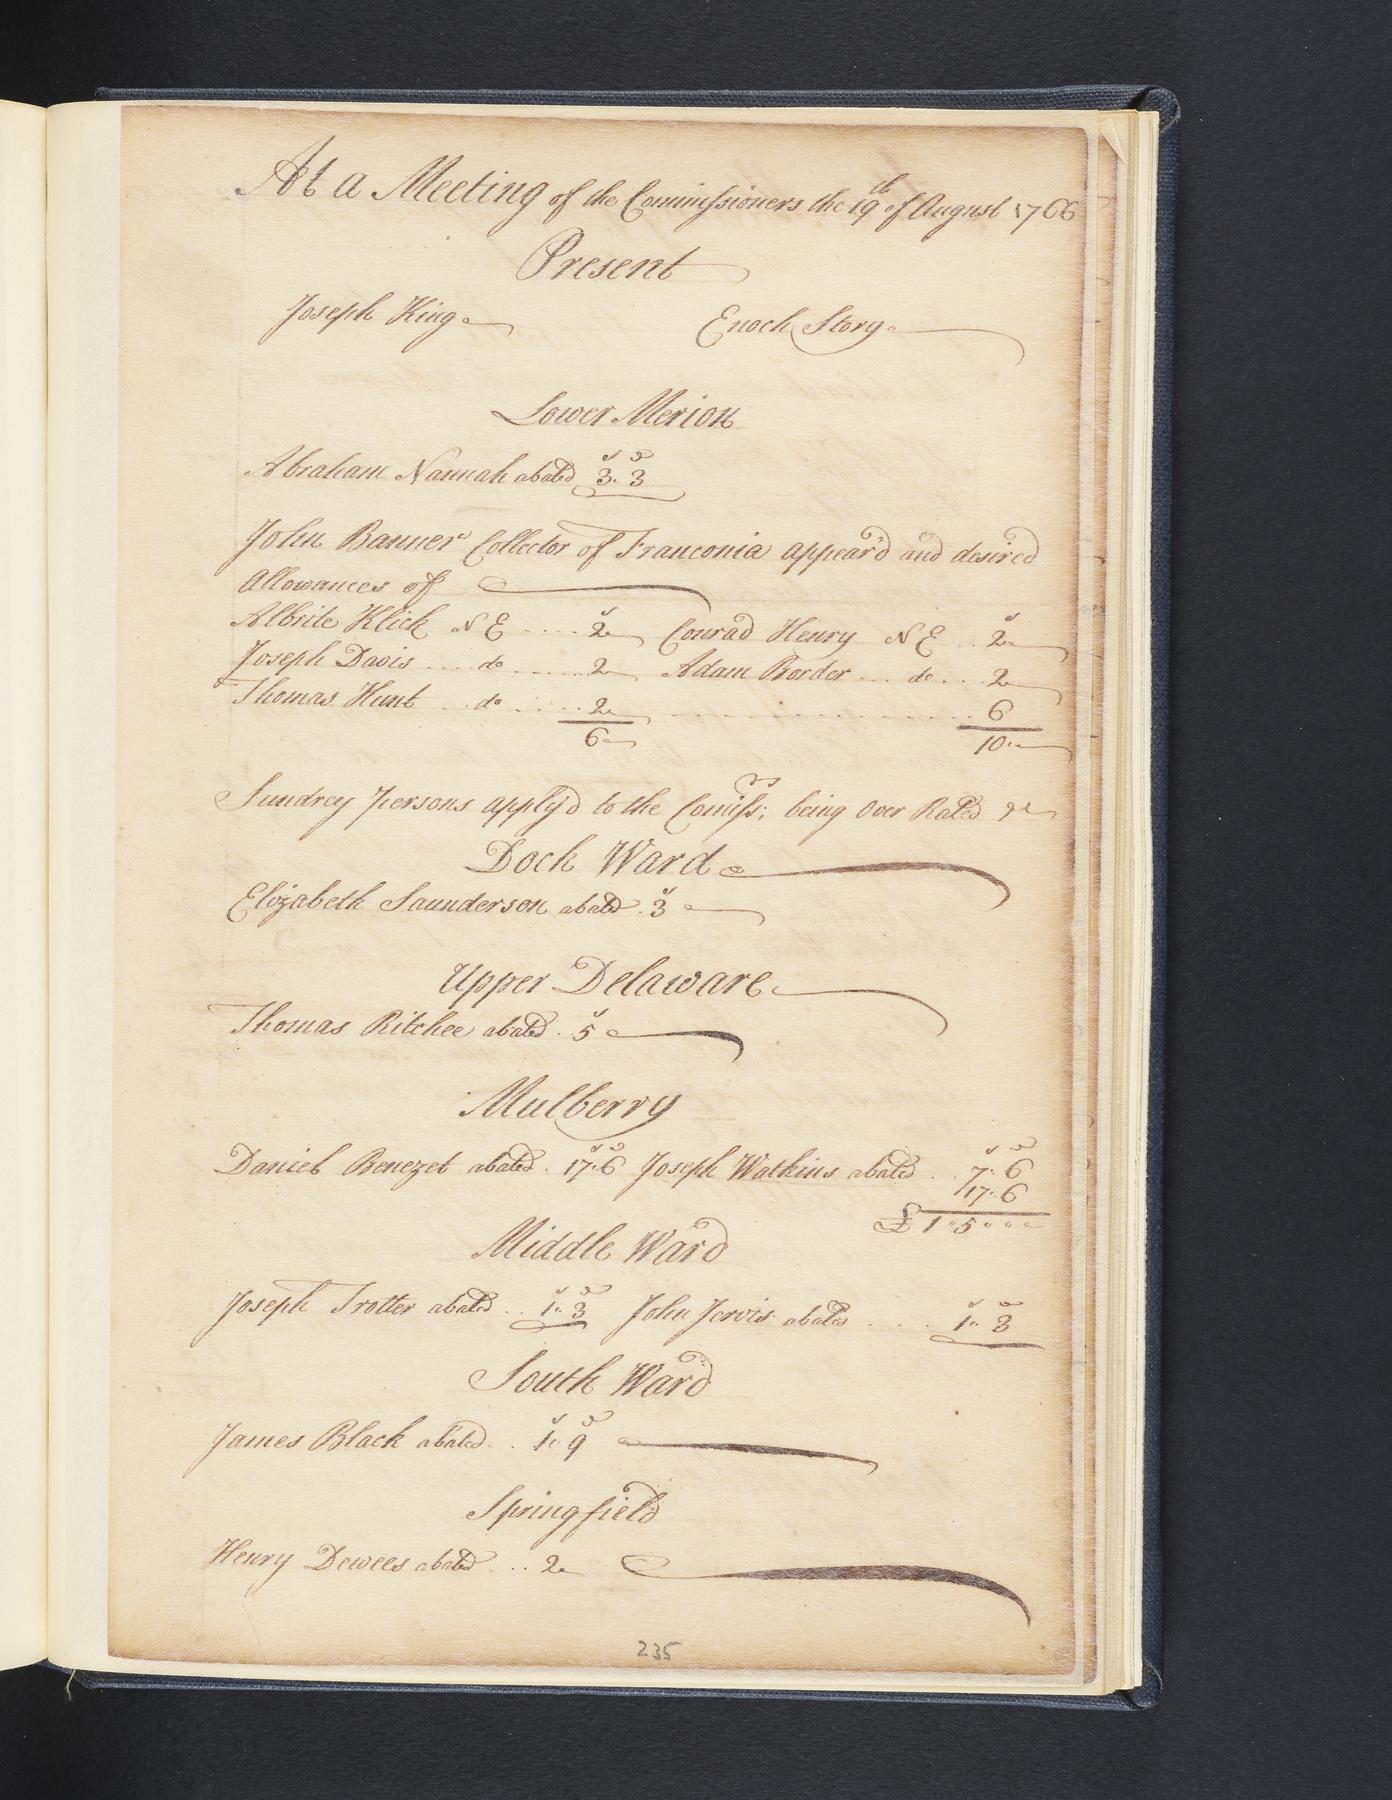 At a Meeting of the Commissioners the 19th of August 1766
Present
Joseph King Enoch Story
Lower Merion
Abraham Nannah abated 3s. 3d
John Banner Collector of Franconia appear'd and desired
Allowances of
Albrite Klick N E .... 2s Conrad Henry N E .. 2s
Joseph Davis .... do ...... 2 Adam Border ... do ... 2
Thomas Hunt .. do ..... 2 .............. 6
6 10
Sundrey persons apply'd to the Comissrs; being Over Rated
Dock Ward
Elizabeth Saunderson abated . 3s
Upper Delaware
Thomas Ritchee abated . 5s
Mulberry
Daniel Benezet abated . 17s.6d Joseph Watkins abated .. 7s. 6d
17. 6
£ 1 " 5 " " "
Middle Ward
Joseph Trotter abated .. 1s. 3d John Jervis abated .... 1s. 3d
South Ward
James Black abated .. 1s. 9d
Springfield
Henry Dewees abated ... 2
235